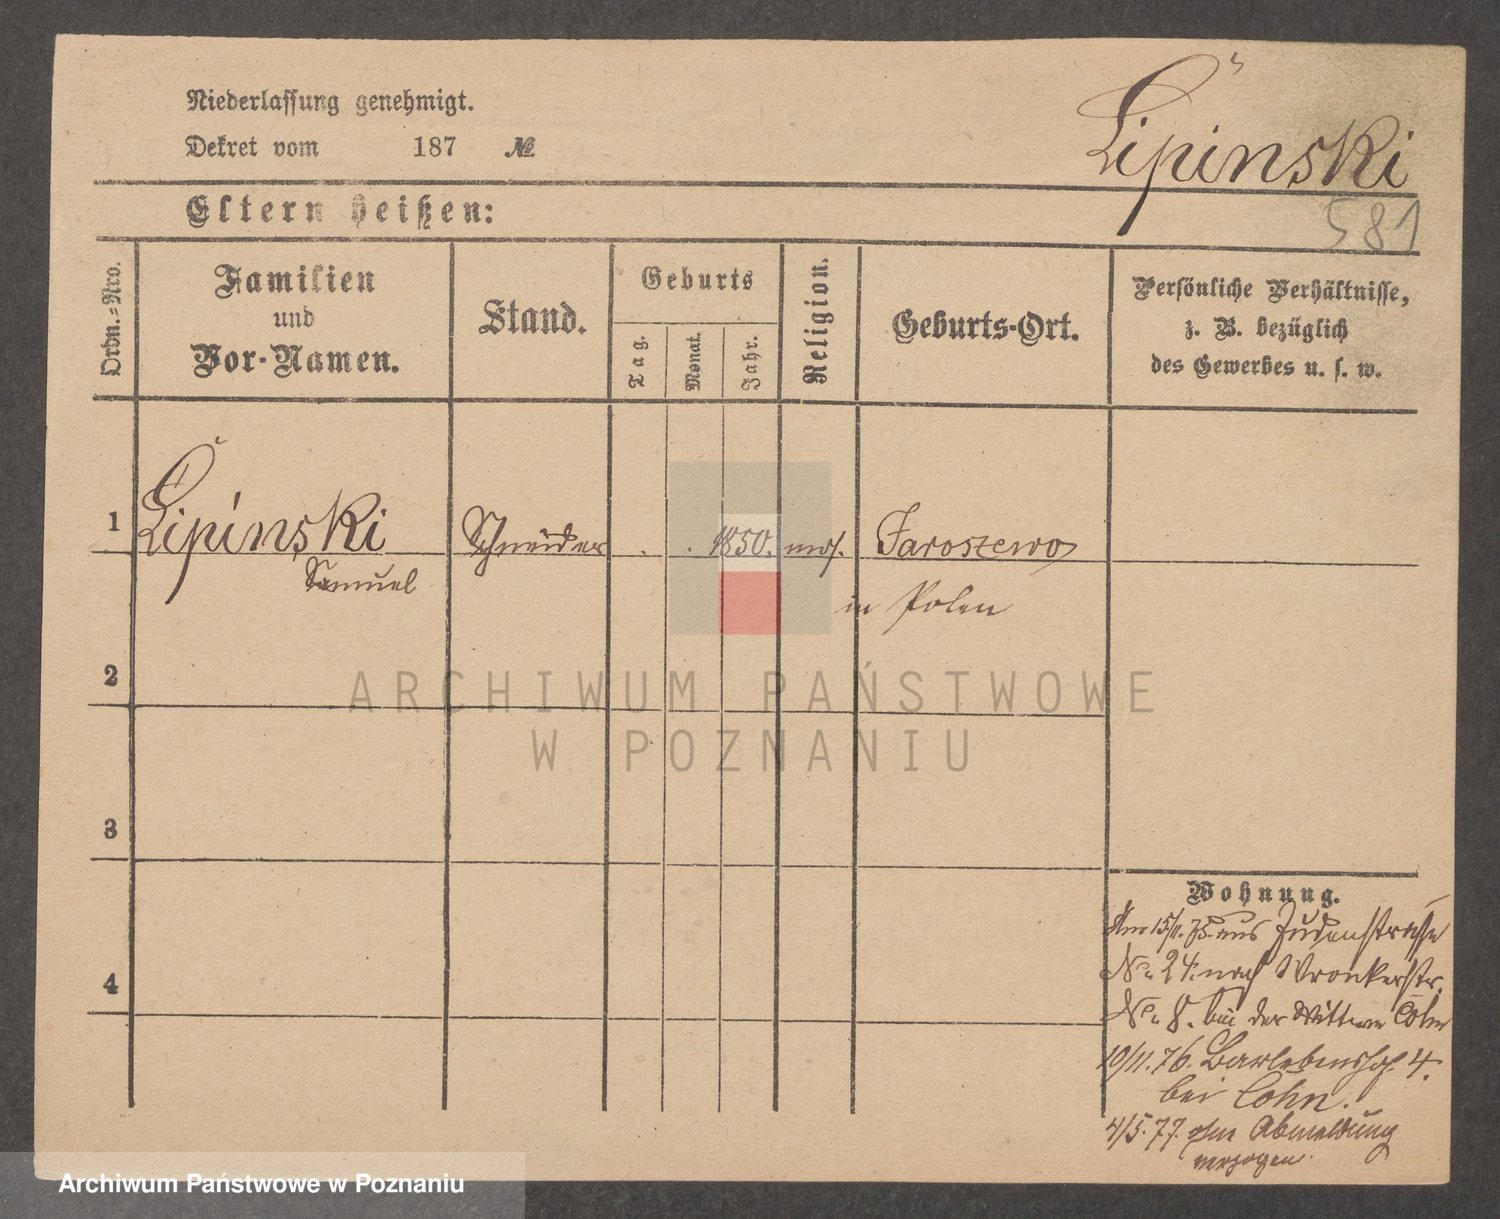 Niederlassung genehmigt.
Dekret vom 187 №
Lipinski
581
Eltern heißen:
Ordn.-Nro.
Familien
und
Vor-Namen.
Stand.
Geburts
Tag.
Monat.
Jahr.
Religion.
Geburts-Ort.
Persönliche Verhältnisse,
z. B. bezüglich
des Gewerbes u. s. w.
1 Lipinski Schneider . . 1850. mos. Jaroszewo
Samuel in Polen
2
ARCHIWUM PAŃSTWOWE
W POZNANIU
3
4
Wohnung.
Am 15/11.75. aus Judenstrasse
No 24. nach Wronkerstr.
No 8. bei der Wittwe Cohn
10/11.76. Barlebenshof. 4.
bei Cohn.
4/5.77. ohne Abmeldung
verzogen.
Archiwum Państwowe w Poznaniu